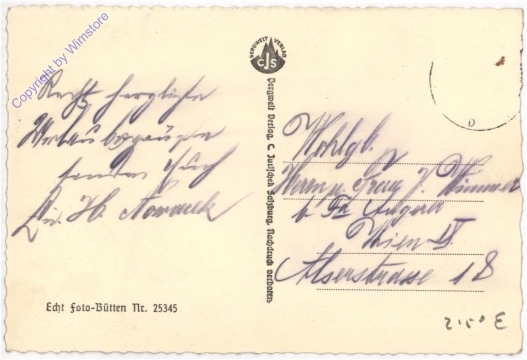 Copyright by Wimstore
Recht herzliche
Urlaubsgrüße
senden Euch
H. Novacek
Echt Foto-Bütten Nr. 25345
BERGWELT VERLAG
CJS
Bergwelt Verlag, C. Jurischek Salzburg. Nachdruck verboten.
Wohlgb.
Herrn u. Frau J. Wimmer
b. Fa
Wien IX
Alserstrasse 18